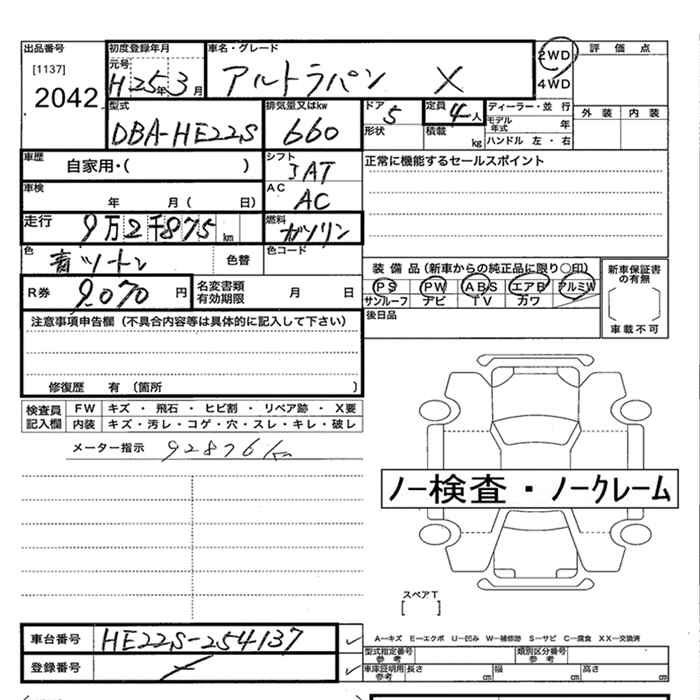 出品番号
[1137]
2042
初度登録年月
元号
H 25年 3月
車名・グレード
アルトラパン X
2WD
4WD
評価点
外装 内装
型式
DBA-HE22S
排気量又はkw
660
ドア
5
形状
定員
4人
積載
kg
ディーラー・並行
モデル年式 年
ハンドル 左・右
車歴
自家用・( )
シフト
AT
正常に機能するセールスポイント
車検
年 月( 日)
AC
AC
走行
9万2千875 km
燃料
ガソリン
色
青ツートン
色替
色コード
R券
9,070 円
名変書類有効期限
月 日
装備品(新車からの純正品に限り〇印)
PS PW ABS エアB アルミW
サンルーフ ナビ TV カワ
後日品
新車保証書の有無
車載不可
注意事項申告欄(不具合内容等は具体的に記入して下さい)
修復歴 有(箇所 )
検査員記入欄
FW キズ・飛石・ヒビ割・リペア跡・X要
内装 キズ・汚レ・コゲ・穴・スレ・キレ・破レ
メーター指示 92876km
ノー検査・ノークレーム
スペアT
[ ]
車台番号
HE22S-254137
登録番号
A―キズ E―エクボ U―凹み W―補修跡 S―サビ C―腐食 XX―交換済
型式指定番号
参考
類別区分番号
参考
車庫証明用参考
長さ cm 幅 cm 高さ cm